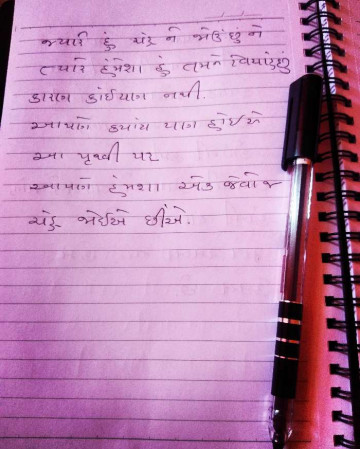 જ્યારે હું ચંદ્ર ને જોઉં છું ને
ત્યારે હંમેશા હું તમને વિચારું છું
કારણ કાંઈપણ નથી.
આપણે ક્યાંય પણ હોઈએ
આ પૃથ્વી પર
આપણે હંમેશા એક જેવો જ
ચંદ્ર જોઈએ છીએ.